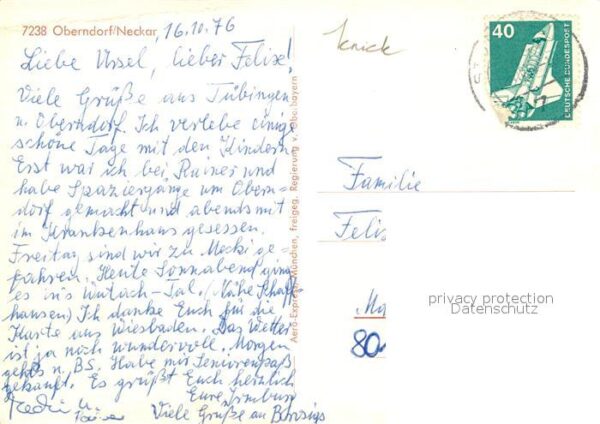 7238 Oberndorf/Neckar, 16.10.76
Liebe Ursel, lieber Felix!
Viele Grüße aus Tübingen
u. Oberndorf. Ich verlebe einige
schöne Tage mit den Kindern.
Erst war ich bei Rainer und
habe Spaziergänge um Obern-
dorf gemacht und abends mit
im Krankenhaus gesessen.
Freitag sind wir zu Mecki ge-
fahren. Heute Sonnabend ging
es in's Wutach-Tal. (Nähe Schaff-
hausen) Ich danke Euch für die
Karte aus Wiesbaden. Das Wetter
ist ja noch wundervoll. Morgen
geht's n. BS. Habe mir Seniorenpaß
gekauft. Es grüßt Euch herzlich
Eure Irmburg
u.
Viele Grüße an Borsigs
Aero-Express München, freigeg. Regierung v. Oberbayern
knick
40
DEUTSCHE BUNDESPOST
Familie
Felix
80
privacy protection
Datenschutz